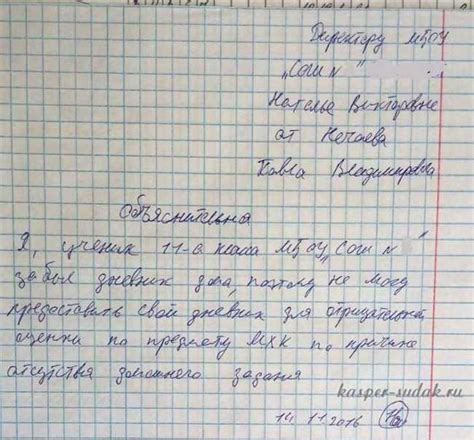 Директору МБОУ
„Сош N "
Наталье Викторовне
от Нечаева
Павла Владимировича
Объяснительна
Я, ученик 11-а класса МБОУ „Сош N "
забыл дневник дома, поэтому не могу
предоставить свой дневник для отрицательной
оценки по предмету МХК по причине
отсутствия домашнего задания
kasper-sudak.ru
14.11.2016